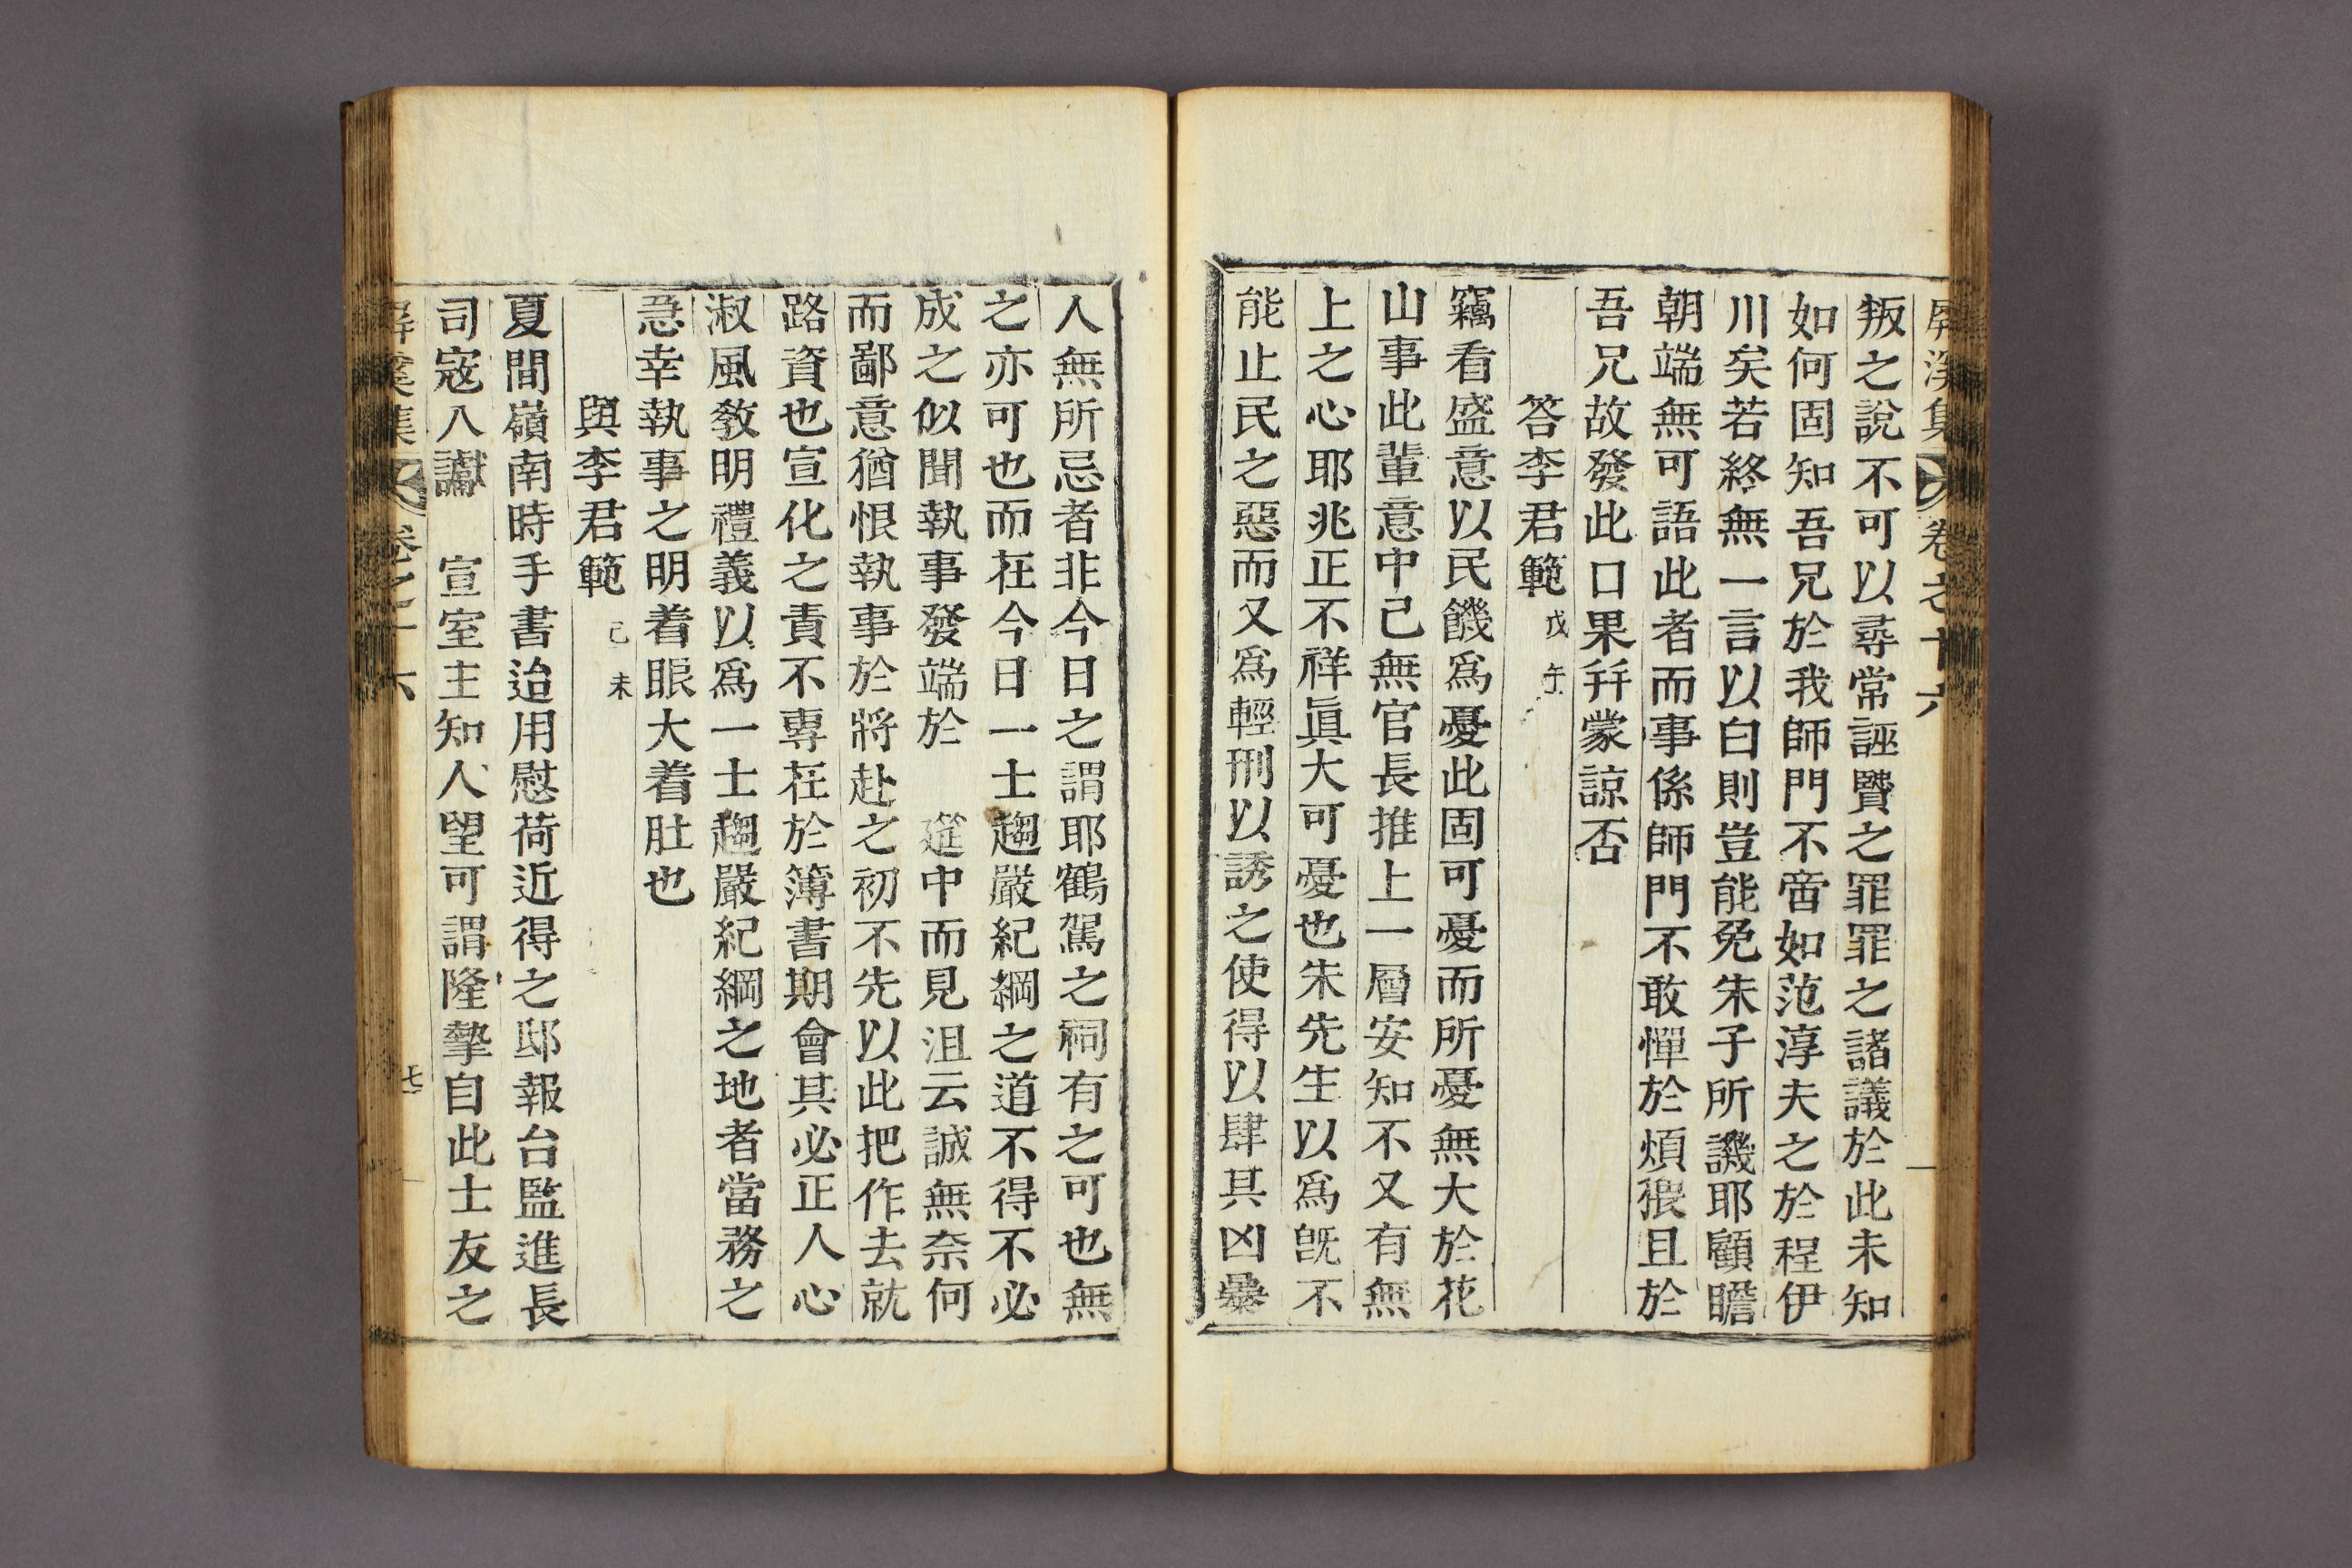 屏溪集 卷之十六
叛之說不可以尋常誣贒之罪罪之諸議於此未知
如何固知吾兄於我師門不啻如范淳夫之於程伊
川矣若終無一言以白則豈能免朱子所譏耶顧瞻
朝端無可語此者而事係師門不敢憚於煩猥且於
吾兄故發此口果犴蒙諒否
答李君範 戊午
竊看盛意以民饑爲憂此固可憂而所憂無大於花
山事此輩意中已無官長推上一層安知不又有無
上之心耶兆正不祥眞大可憂也朱先生以爲旣不
能止民之惡而又爲輕刑以誘之使得以肆其凶暴
人無所忌者非今日之謂耶鶴駕之祠有之可也無
之亦可也而在今日一士趨嚴紀綱之道不得不必
成之似聞執事發端於 筵中而見沮云誠無奈何
而鄙意猶恨執事於將赴之初不先以此把作去就
路資也宣化之責不專在於簿書期會其必正人心
淑風敎明禮義以爲一士趨嚴紀綱之地者當務之
急幸執事之明着眼大着肚也
與李君範 己未
夏間嶺南時手書迨用慰荷近得之邸報台監進長
司寇入讞 宣室主知人望可謂隆摯自此士友之
屏溪集 卷之十六 七